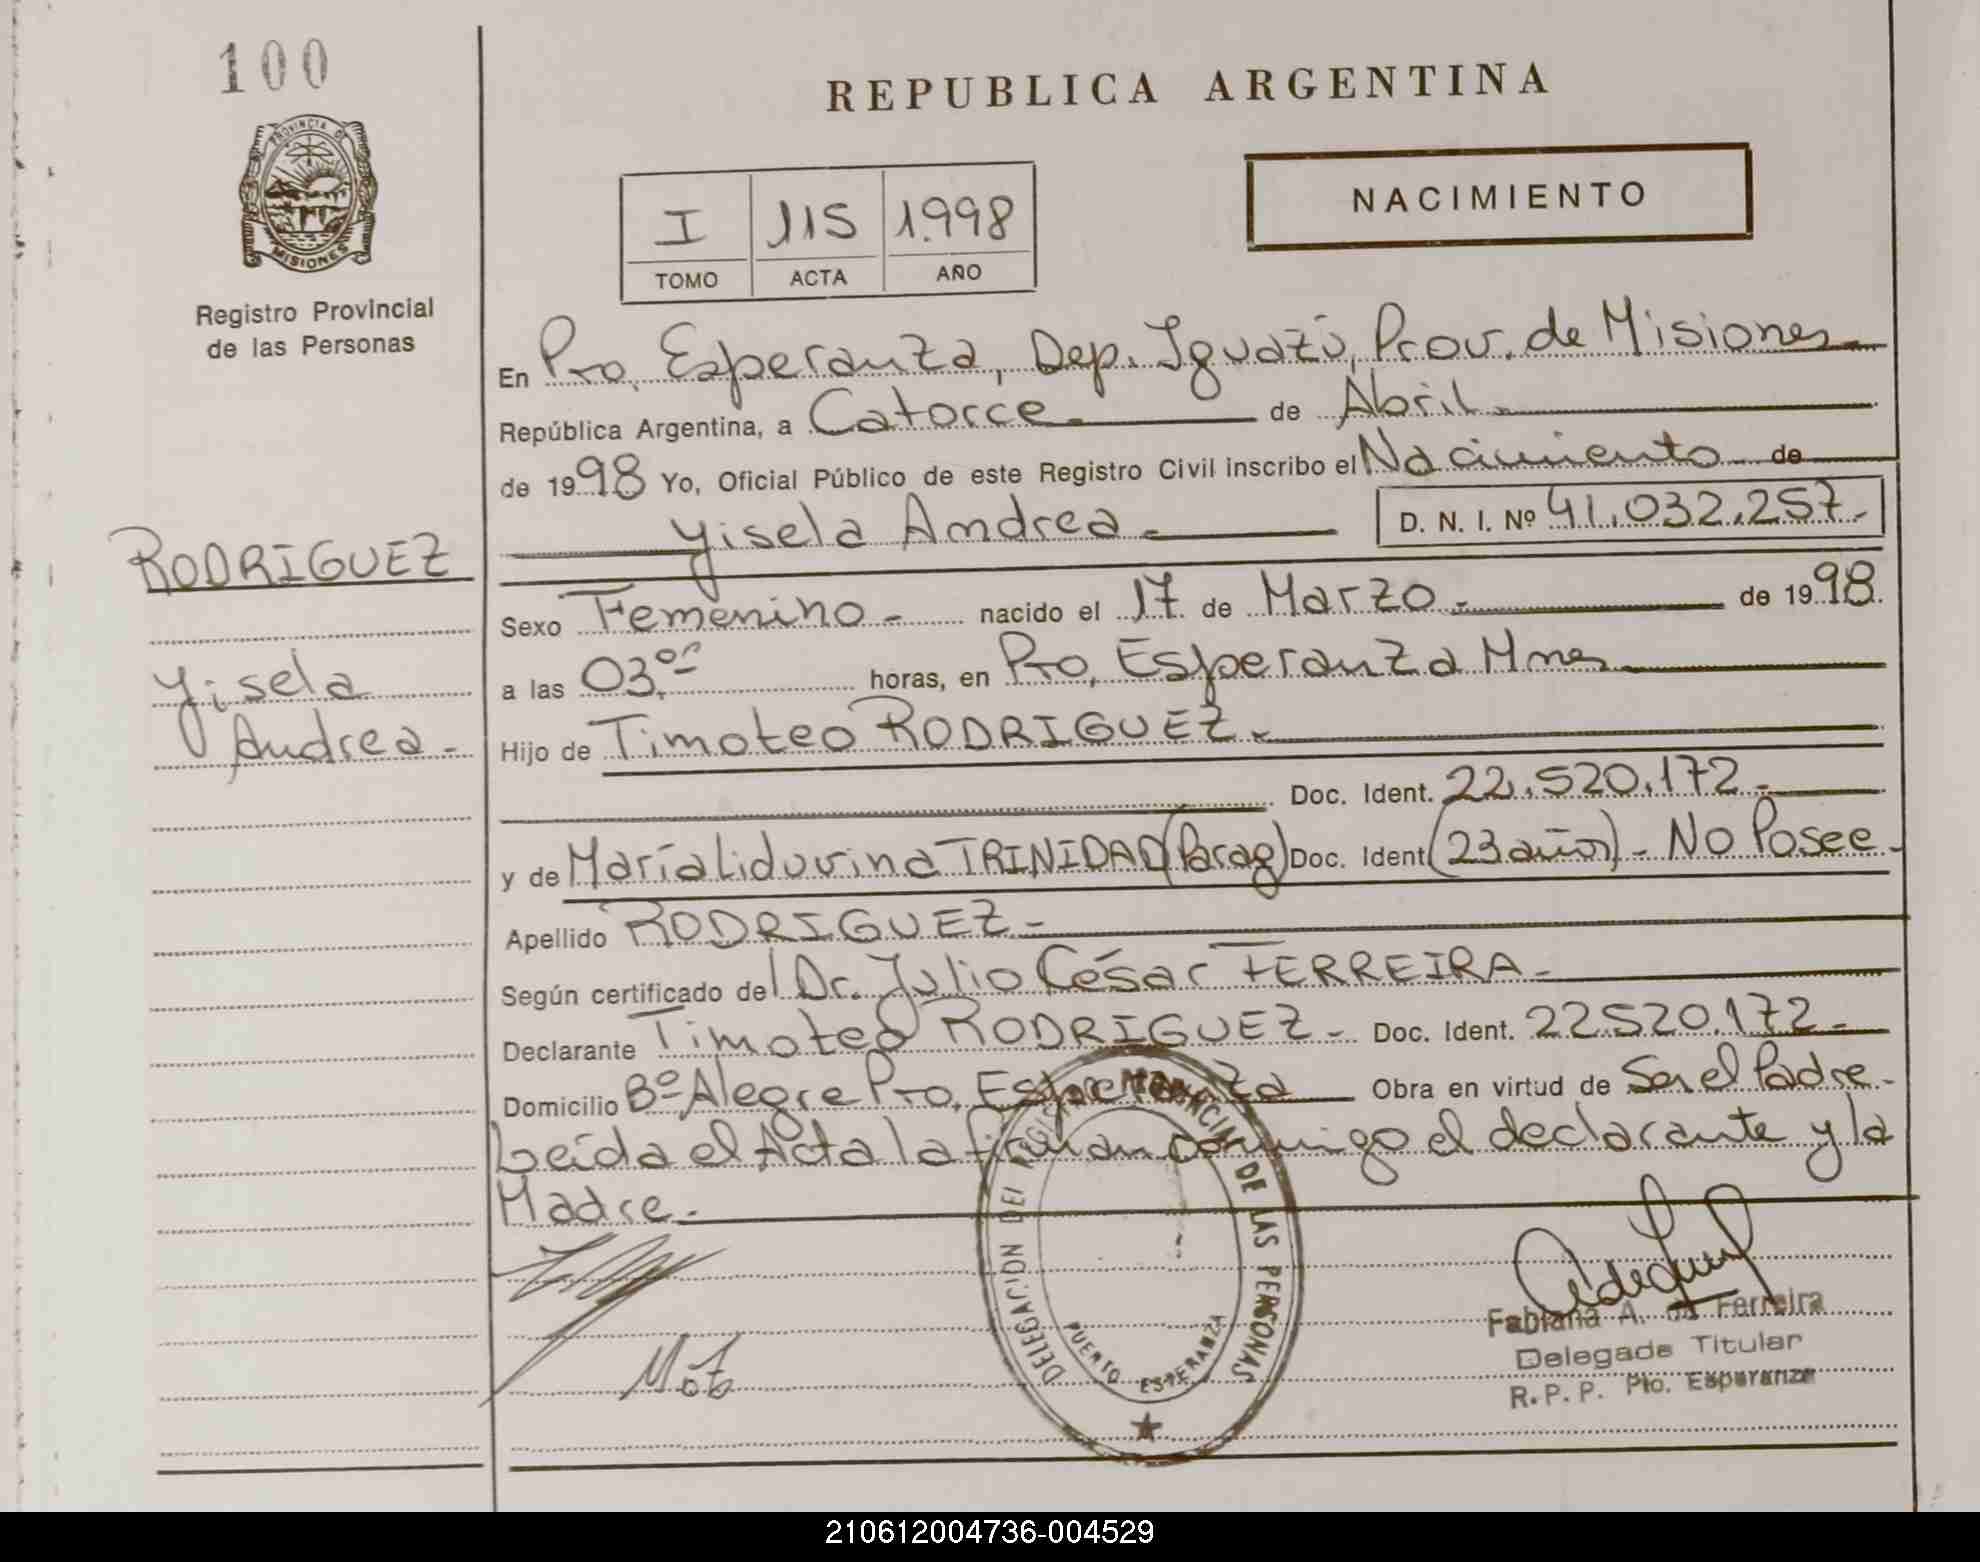 100
PROVINCIA DE
MISIONES
Registro Provincial
de las Personas
RODRIGUEZ
Yisela
Andrea -
REPUBLICA ARGENTINA
I 115 1.998
TOMO ACTA AÑO
NACIMIENTO
En Pto. Esperanza, Dep. Iguazú, Prov. de Misiones
República Argentina, a Catorce de Abril
de 1998 Yo, Oficial Público de este Registro Civil inscribo el Nacimiento de
Yisela Andrea - D. N. I. Nº 41.032.257.
Sexo Femenino - nacido el 17 de Marzo - de 1998.
a las 03,00 horas, en Pto. Esperanza Mnes
Hijo de Timoteo RODRIGUEZ -
Doc. Ident. 22.520.172 -
y de María Liduvina TRINIDAD (Parag) Doc. Ident (23 años) - No Posee -
Apellido RODRIGUEZ -
Según certificado del Dr. Julio César FERREIRA -
Declarante Timoteo RODRIGUEZ - Doc. Ident. 22.520.172 -
Domicilio Bº Alegre Pto. Esperanza Obra en virtud de Ser el Padre -
Leída el Acta la firman conmigo el declarante y la
Madre -
DELEGACION DEL REGISTRO PROVINCIAL DE LAS PERSONAS
PUERTO ESPERANZA
Fabiana A. da Ferreira
Delegada Titular
R. P. P. Pto. Esperanza
210612004736-004529